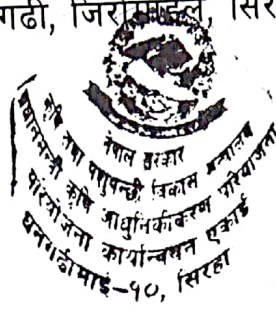 गढी, जिरोमाइल, सिर
नेपाल सरकार
कृषि तथा पशुपन्छी विकास मन्त्रालय
प्रधानमन्त्री कृषि आधुनिकीकरण परियोजना
परियोजना कार्यान्वयन एकाई
धनगढीमाई-१०, सिरहा